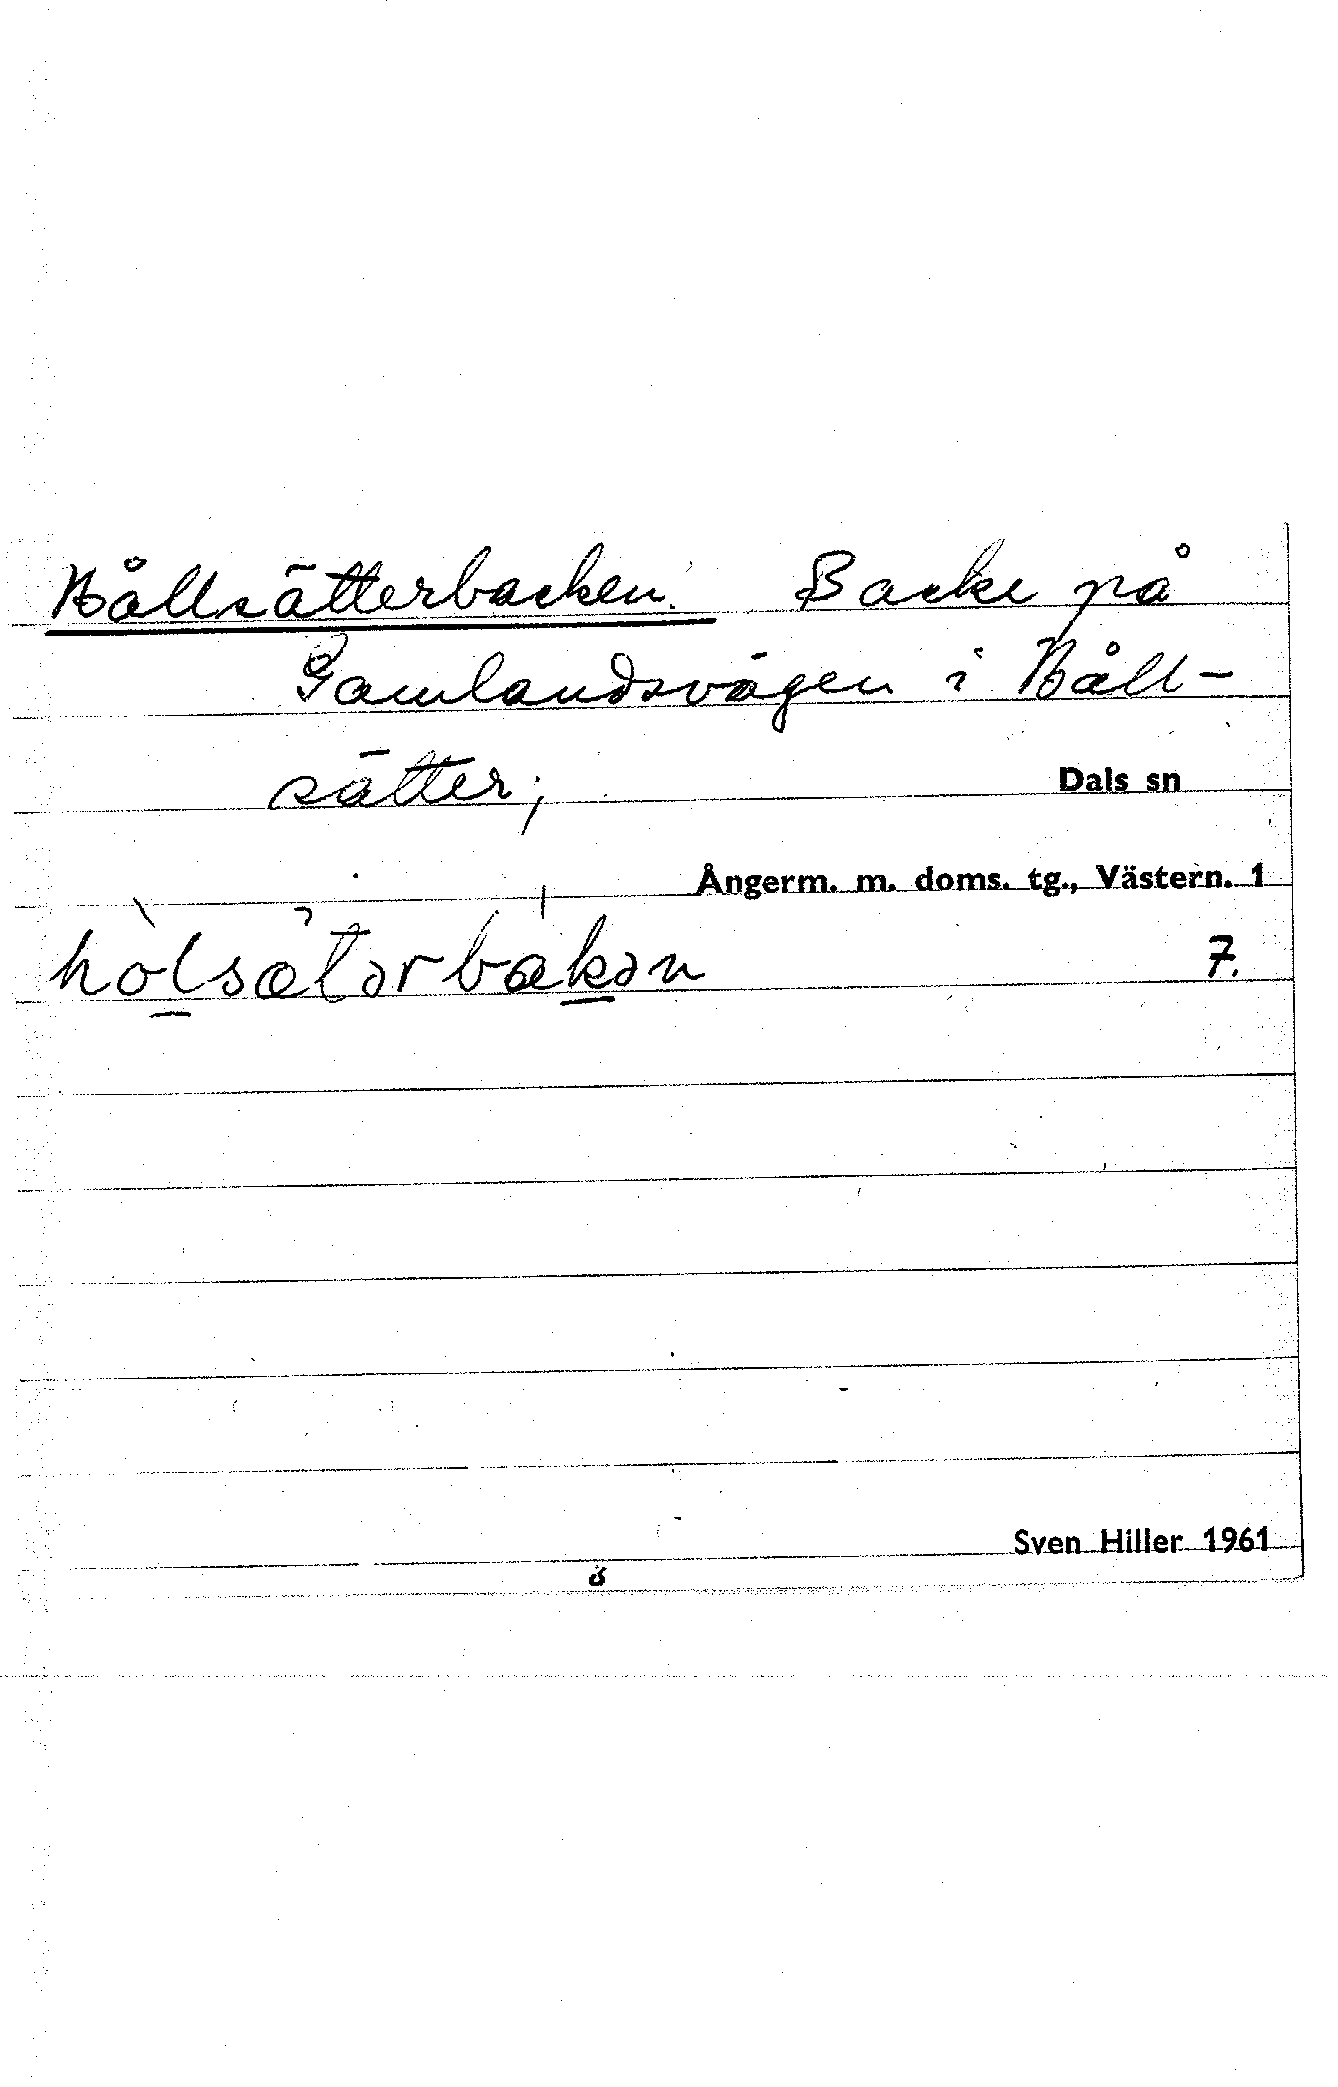 Hållsätterbacken. Backe på
Gamlandsvägen i Håll-
sätter;
Dals sn
Ångerm. m. doms. tg., Västern. 1
7.
Sven Hiller 1961